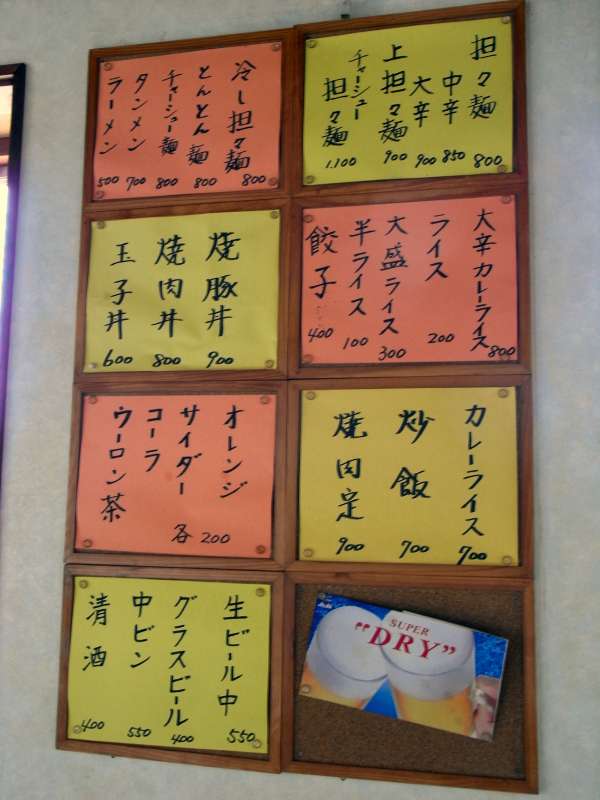 担々麺 800
中辛 850
大辛 900
上担々麺 900
チャーシュー担々麺 1.100
冷し担々麺 800
とんとん麺 800
チャーシュー麺 800
タンメン 700
ラーメン 500
大辛カレーライス 800
ライス 200
大盛ライス 300
半ライス 100
餃子 400
焼豚丼 900
焼肉丼 800
玉子丼 600
カレーライス 700
炒飯 700
焼肉定 900
オレンジ
サイダー
コーラ
ウーロン茶
各200
生ビール中 550
グラスビール 400
中ビン 550
清酒 400
Asahi
SUPER
"DRY"